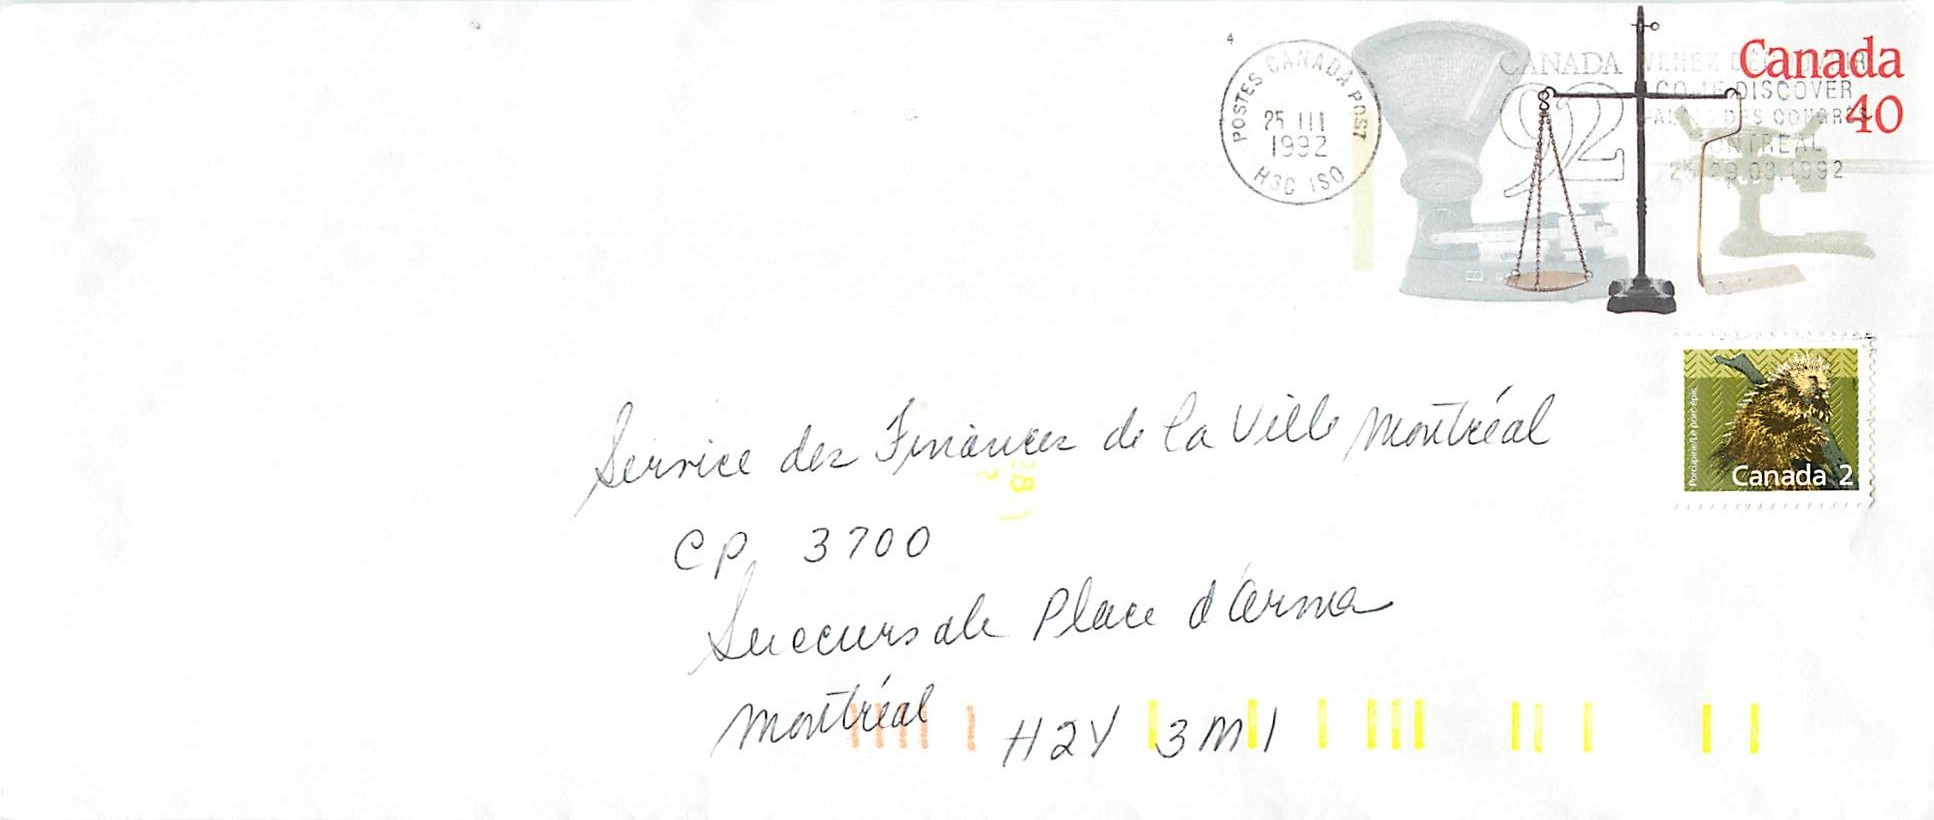 4
POSTES CANADA POST
25 III
1992
H3C 1S0
CANADA
92
VENEZ DÉCOUVRIR
COME DISCOVER
PALAIS DES CONGRÈS
MONTRÉAL
25-29.03.1992
Canada
40
Porcupine/Le porc-épic
Canada 2
Service des Finances de la Ville Montréal
CP 3700
Succursale Place d'Armes
Montréal H2Y 3M1